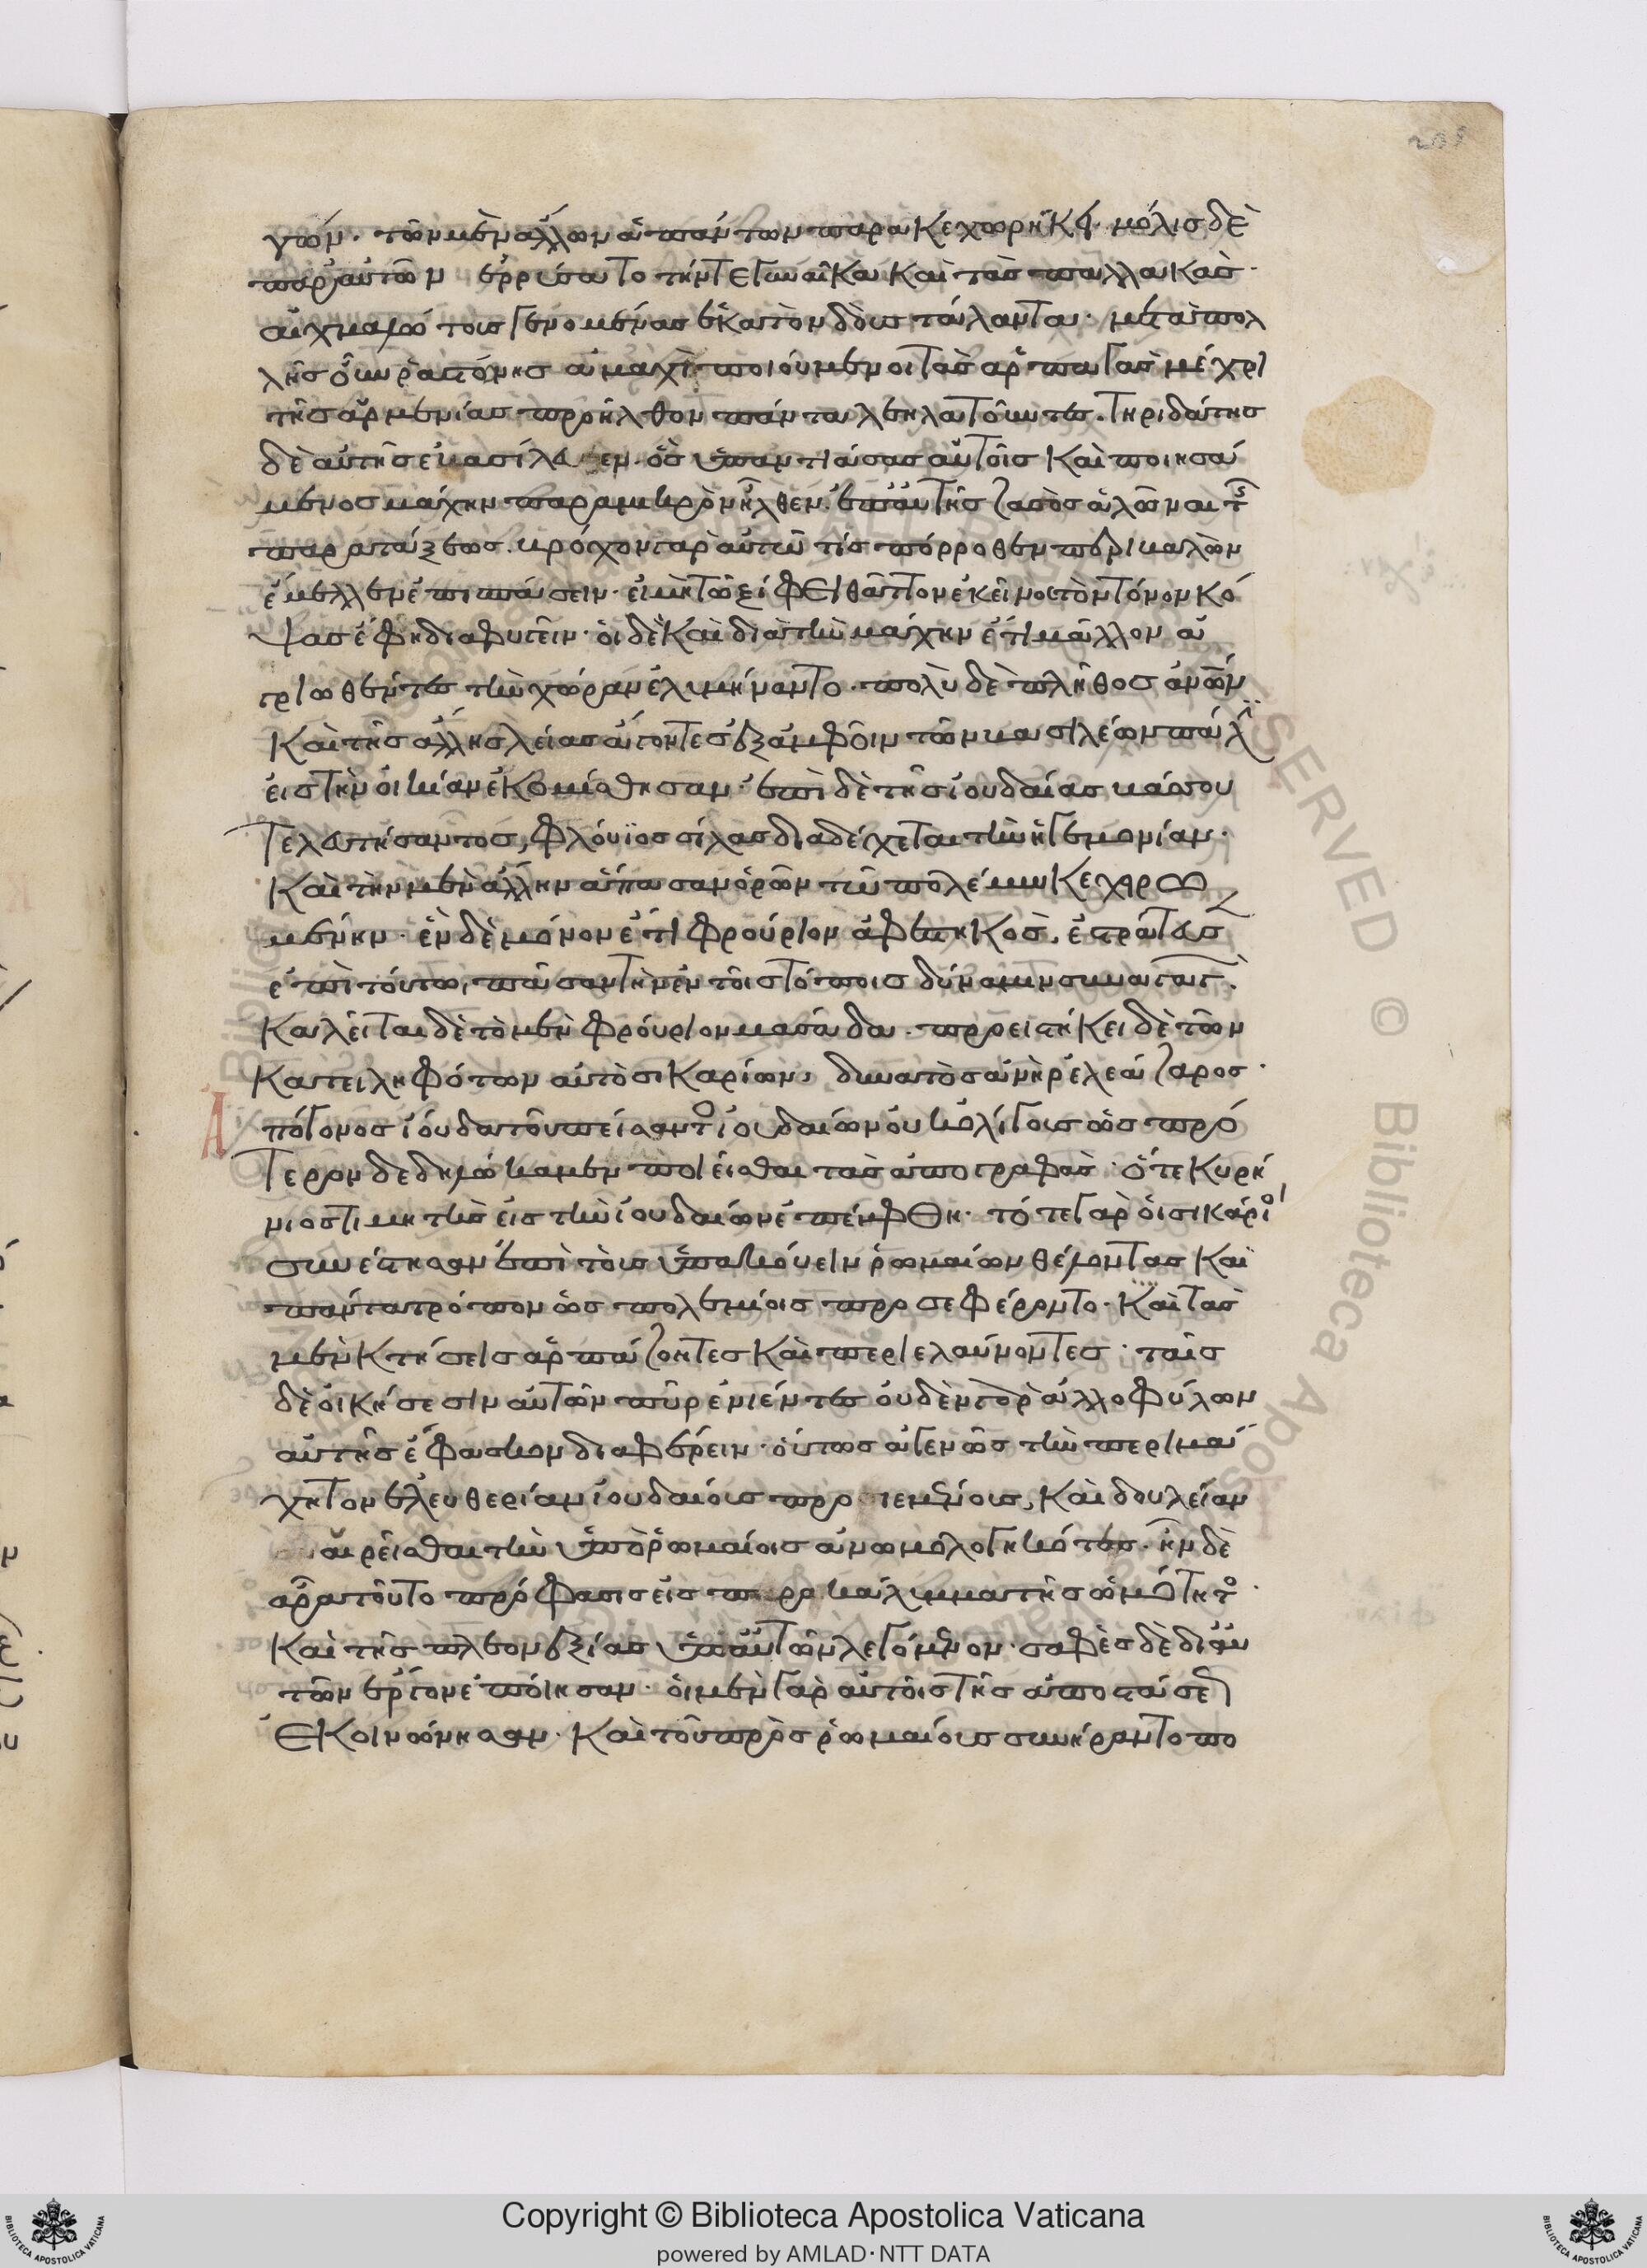 γων. τῶν μὲν ἄλλων ἁπάντων παρακεχωρήκει. μόλις δὲ
παρ' αὐτῶν ἐρρύσατο τήν τε γυναῖκα καὶ τὰς παλλακὰς
αἰχμαλώτους γενομένας ἑκατὸν δοὺς τάλαντα. μετὰ πολ
λῆς οὖν ῥαστώνης ἀμαχὶ ποιούμενοι τὰς ἁρπαγὰς μέχρι
τῆς ἀρμενίας προῆλθον πάντα λεηλατοῦντες. τηριδάτης
δὲ αὐτῆς ἐβασίλευεν. ὃς ὑπαντιάσας αὐτοῖς καὶ ποιησά
μενος μάχην παρὰ μικρὸν ἦλθεν ἐπ' αὐτῆς ζωὸς ἁλῶναι τῆς
παρατάξεως. βρόχον γὰρ αὐτῶ τίς πόρροθεν περιβαλὼν
ἔμελλεν ἐπισπάσειν. εἰ μὴ τῶ ξίφει θᾶττον ἐκεῖνος τὸν τόνον κό
ψας ἔφθη διαφυγεῖν. οἱ δὲ καὶ διὰ τὴν μάχην ἔτι μᾶλλον ἀ
γριωθέντες τὴν χώραν ἐλυμήναντο. πολὺ δὲ πλῆθος ἀνθρώπων
καὶ τῆς ἄλλης λείας ἄγοντες ἐξ ἀμφοῖν τῶν βασιλέων πάλιν
εἰς τὴν οἰκίαν ἐκομίσθησαν. ἐπὶ δὲ τῆς ἰουδαίας βάσσου
τελευτήσαντος, φλάυϊος σίλας διαδέχεται τὴν ἡγεμονίαν.
καὶ τὴν μὲν ἄλλην ἅπασαν ὁρῶν τῶ πολέμω κεχειρω
μένην. ἓν δὲ μόνον ἔτι φρούριον ἀφεστηκὸς, ἐστράτευσεν
ἐπὶ τούτω, πᾶσαν τὴν ἐν τοῖς τόποις δύναμιν συναγαγών.
καλεῖται δὲ τὸ μὲν φρούριον μασάδα. προειστήκει δὲ τῶν
κατειληφότων αὐτὸ σικαρίων, δυνατὸς ἀνὴρ ἐλεάζαρος.
Ἀπόγονος ἰούδα τοῦ πείσαντος ἰουδαίων οὐκ ὀλίγους ὡς πρό
τερον δεδηλώκαμεν ποιεῖσθαι τὰς ἀπογραφὰς. ὅτε κυρή
νιος τιμητὴς εἰς τὴν ἰουδαίων ἐπέμφθη. τότε γὰρ οἱ σικάριοι
συνέστησαν ἐπὶ τοὺς ὑπακούειν ῥωμαίων θέλοντας καὶ
πάντα τρόπον ὡς πολεμίοις προσεφέροντο. καὶ τὰς
μὲν κτήσεις ἁρπάζοντες καὶ περιελαύνοντες. ταῖς
δὲ οἰκήσεσιν αὐτῶν πῦρ ἐνιέντες οὐδὲν γὰρ ἀλλοφύλων
αὐτῆς ἔφασκον διαφέρειν. οὕτως ἀγενῶς τὴν περιμά
χητον ἐλευθερίαν ἰουδαίους προ    μένους, καὶ δουλείαν
αἱρεῖσθαι τὴν ὑπὸ ῥωμαίοις ἀνωμολογηκότας. ἦν δὲ
ἄρα τοῦτο πρόφασις εἰς παρακάλυμμα τῆς ὠμότητος
καὶ τῆς πλεονεξίας ὑπ' αὐτῶν λεγόμενον. σαφὲς δὲ διὰ
τῶν ἔργων ἐποίησαν. οἱ μὲν γὰρ αὐτοῖς τῆς ἀποστάσεως
ἐκοινώνησαν. καὶ τοῦ πρὸς ῥωμαίους συνήραντο πο